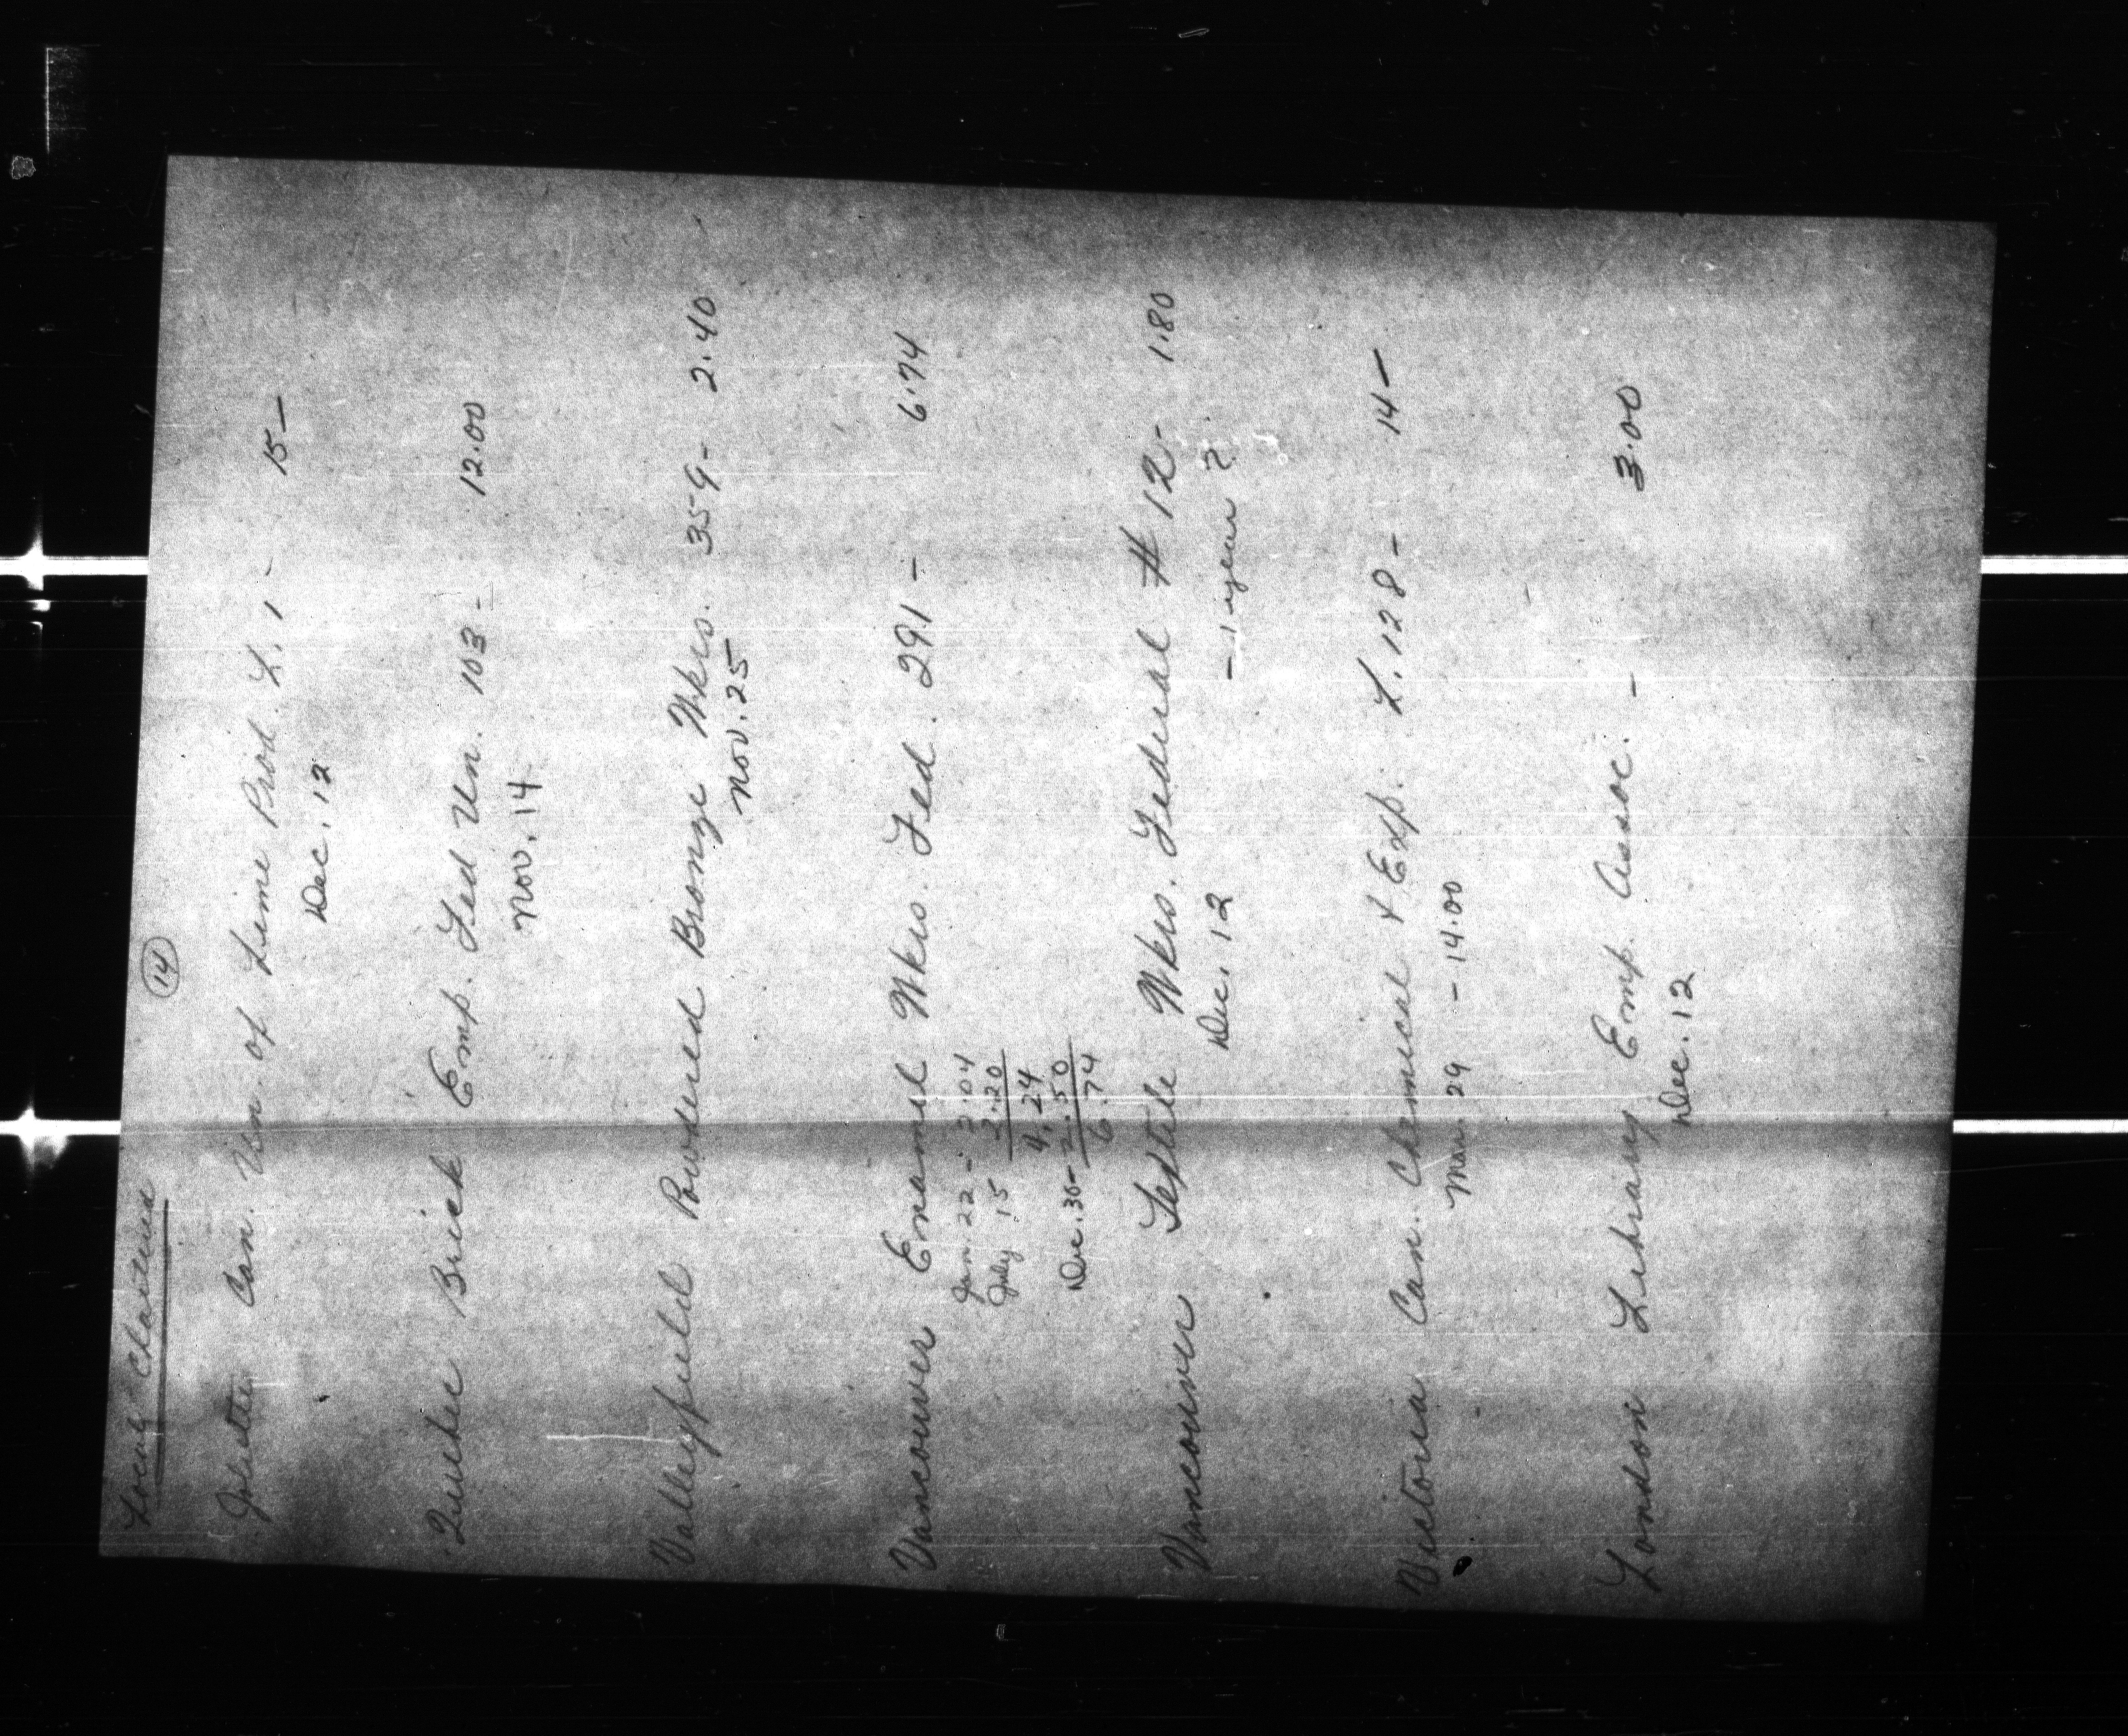 Locals Chartered
14
Joliette Can. Un. of Lime Prod. L. 1 - 15 —
Dec. 12
Quebec Brick Emp. Fed Un. 103 - 12.00
Nov. 14
Valleyfield Powdered Bronze Wkrs. 359 - 2.40
Nov. 25
Vancouver Enamel Wkrs. Fed. 291 - 6.74
Jan. 22 - 2.04
July 15 2.20
4.24
Dec. 30 - 2.50
6.74
Vancouver Textile Wkrs. Federal # 12 - 1.80
Dec. 12 - 1 year ?
Victoria Can. Chemical & Exp. L. 128 - 14 —
Mar. 29 - 14.00
London Library Emp. Assoc. - 3.00
Dec. 12